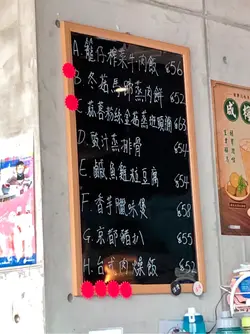 A. 籠仔榨菜牛肉飯 $56
B. 冬菇馬蹄蒸肉餅 $52
C. 蒜蓉粉絲金菇蒸斑頭腩 $63
D. 豉汁蒸排骨 $54
E. 鹹魚雞粒豆腐 $54
F. 香芋臘味煲 $58
G. 京都豬扒 $55
H. 台式肉燥飯 $52